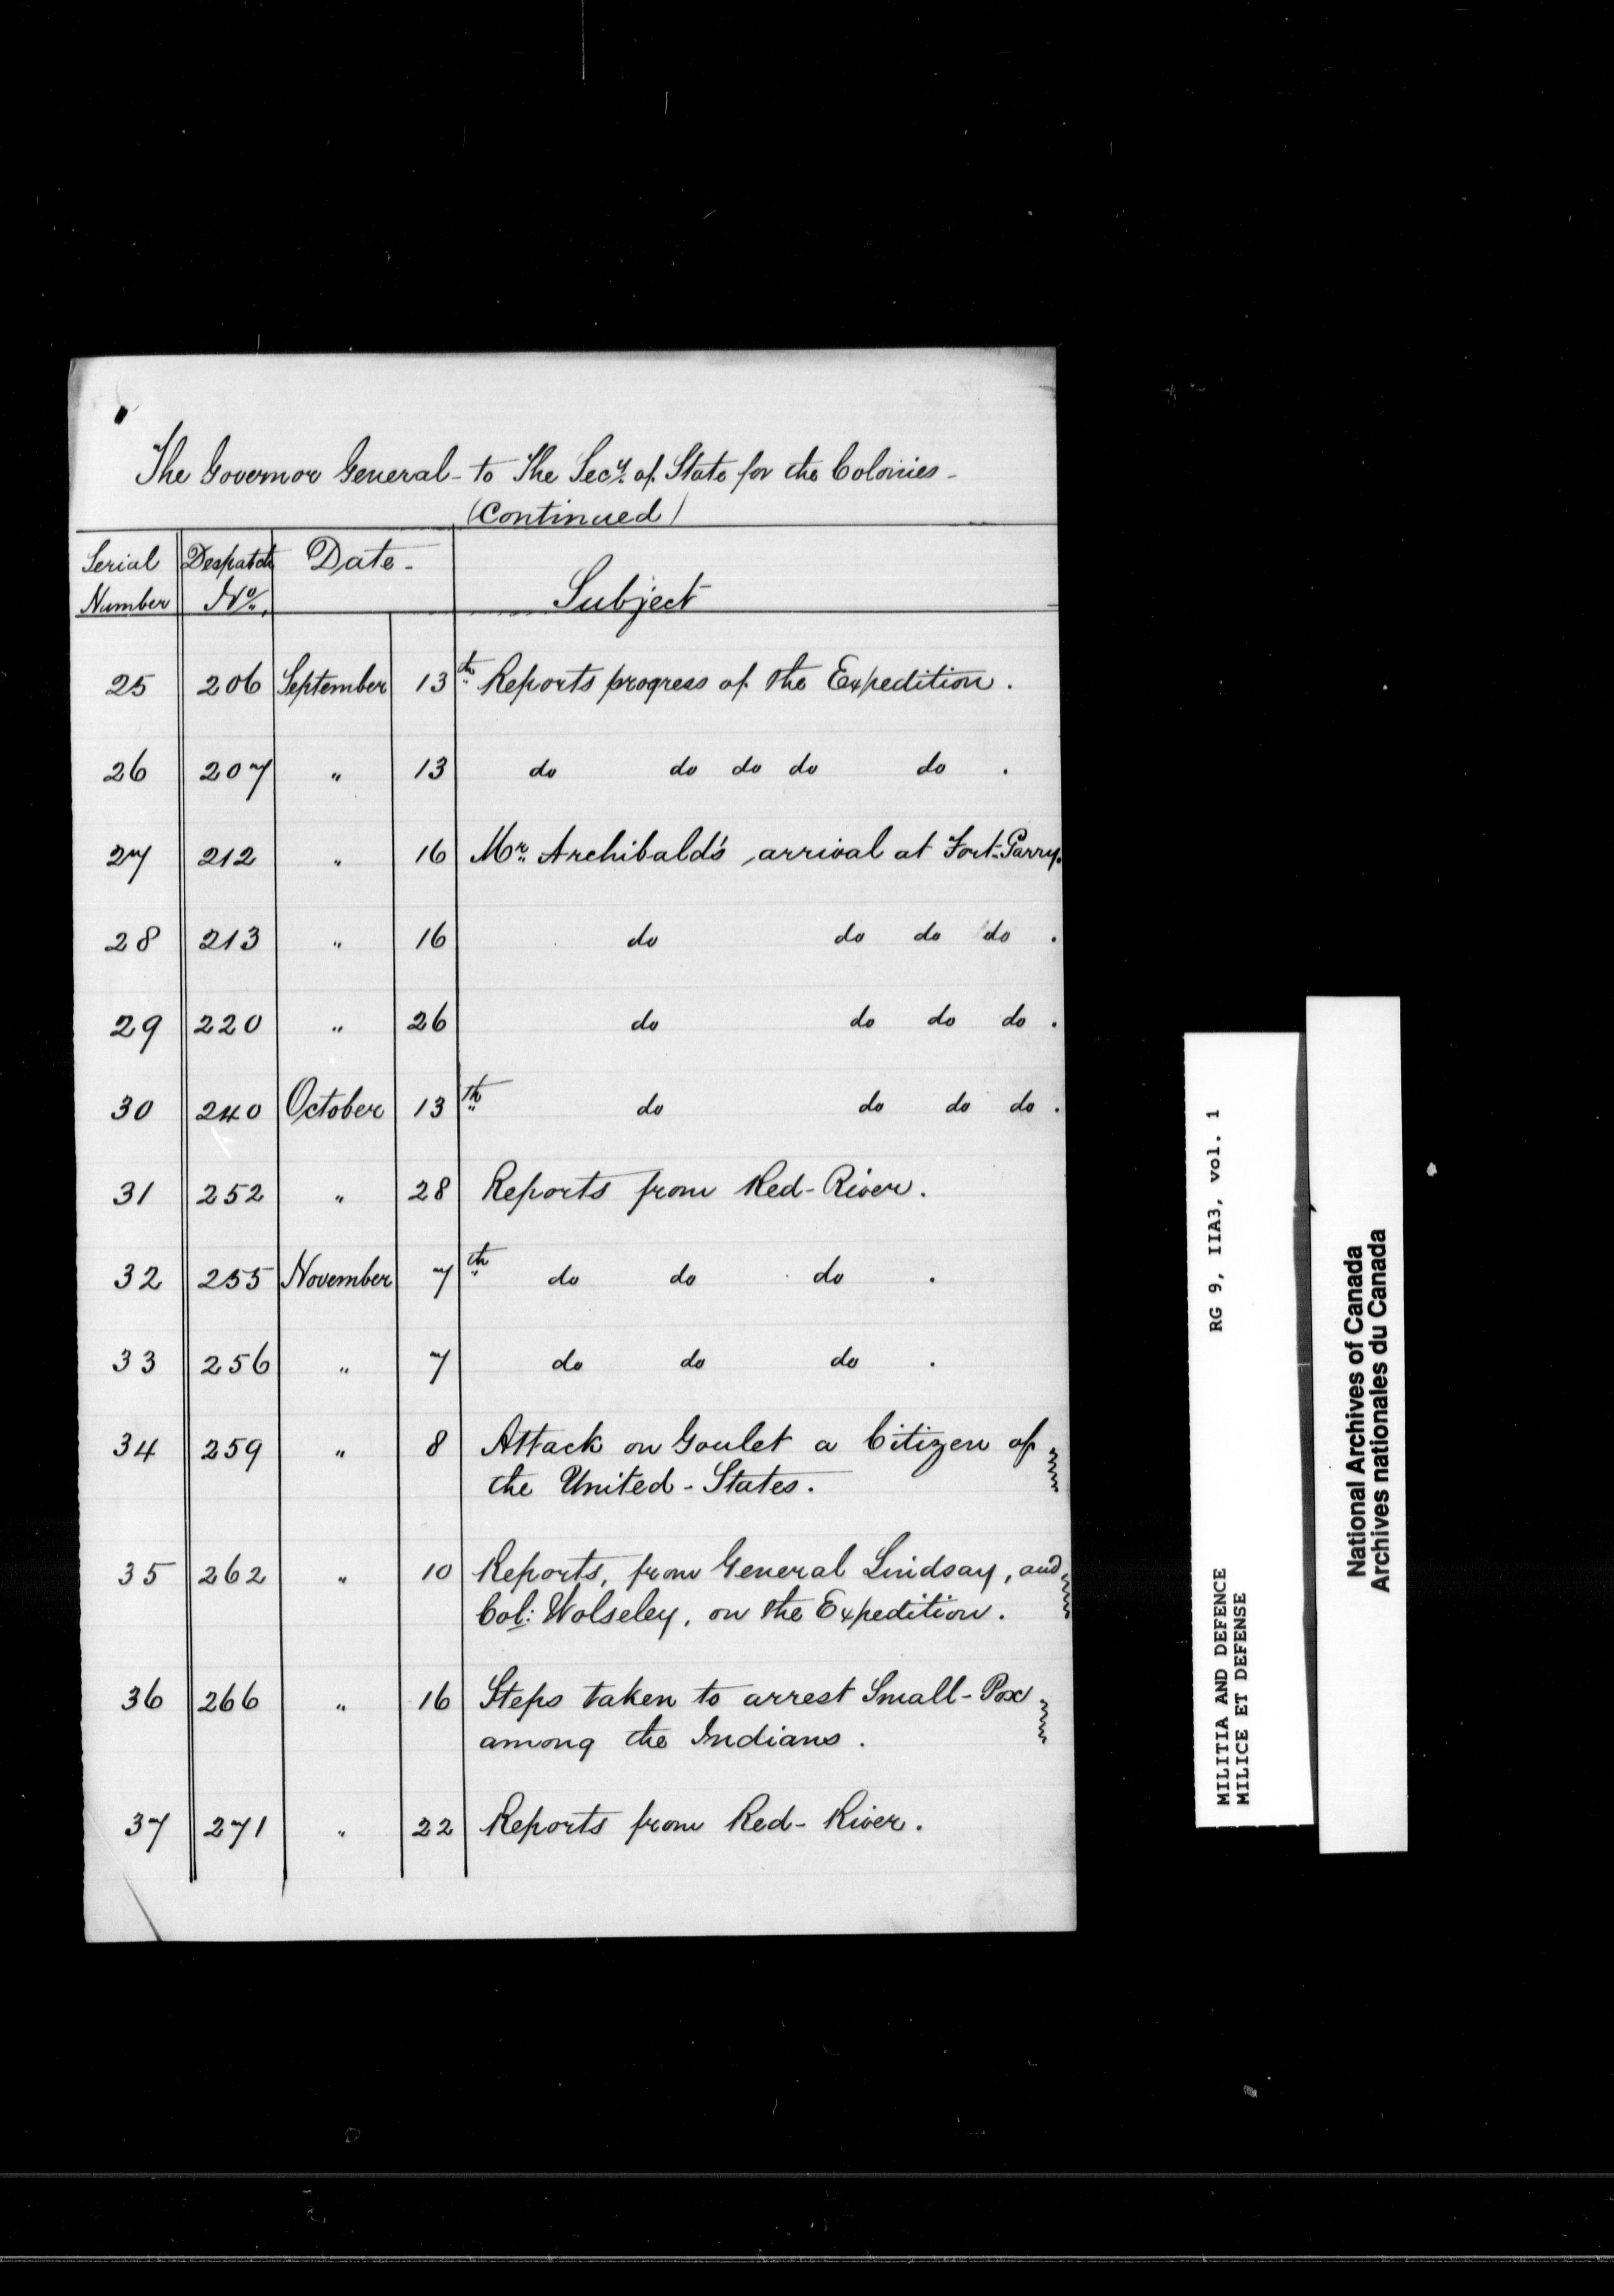 The Governor General - to The Secy. of State for the Colonies -
(Continued)
Serial Number Despatch No. Date - Subject
25 206 September 13th Reports progress of the Expedition .
26 207 " 13 do do do do do .
27 212 " 16 Mr. Archibald's arrival at Fort-Garry.
28 213 " 16 do do do do .
29 220 " 26 do do do do .
30 240 October 13th do do do do .
31 252 " 28 Reports from Red-River .
32 255 November 7th do do do .
33 256 " 7 do do do .
34 259 " 8 Attack on Goulet a Citizen of
the United-States .
35 262 " 10 Reports, from General Lindsay, and
Col: Wolseley, on the Expedition .
36 266 " 16 Steps taken to arrest Small-Pox
among the Indians .
37 271 " 22 Reports from Red-River .
MILITIA AND DEFENCE RG 9, IIA3, vol. 1
MILICE ET DEFENSE
National Archives of Canada
Archives nationales du Canada